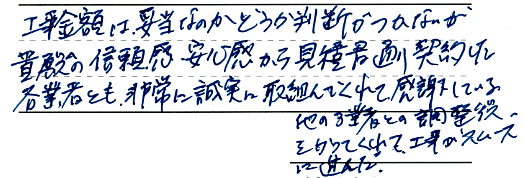 工事金額は、妥当なのかどうか判断がつかないが
貴殿の信頼感 安心感から見積書通り契約した
各業者とも、非常に誠実に取組んでくれて感謝している
他の3業者との調整役
を行ってくれて、工事がスムーズ
に進んだ.